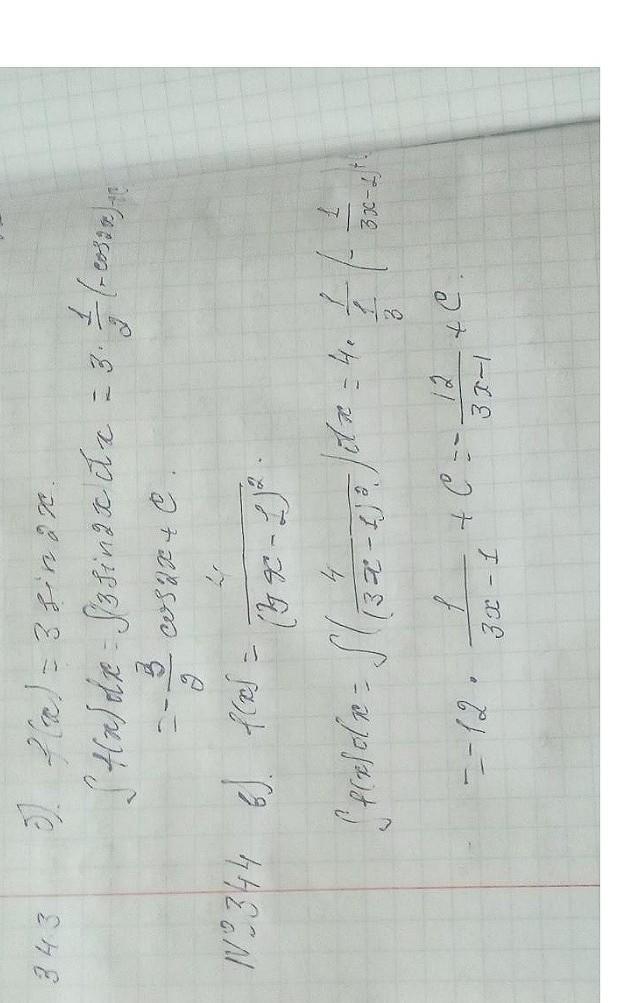 343 б). f(x) = 3 sin 2x.
∫ f(x) dx = ∫(3 sin 2x) dx = 3 · 1/2 (-cos 2x) +
= - 3/2 cos 2x + C.
N 344 в). f(x) = 4/(3x - 1)².
∫ f(x) dx = ∫(4/(3x - 1)²) dx = 4 · 1/(1/3) (- 1/(3x - 1)) +
= -12 · 1/(3x - 1) + C = - 12/(3x - 1) + C.